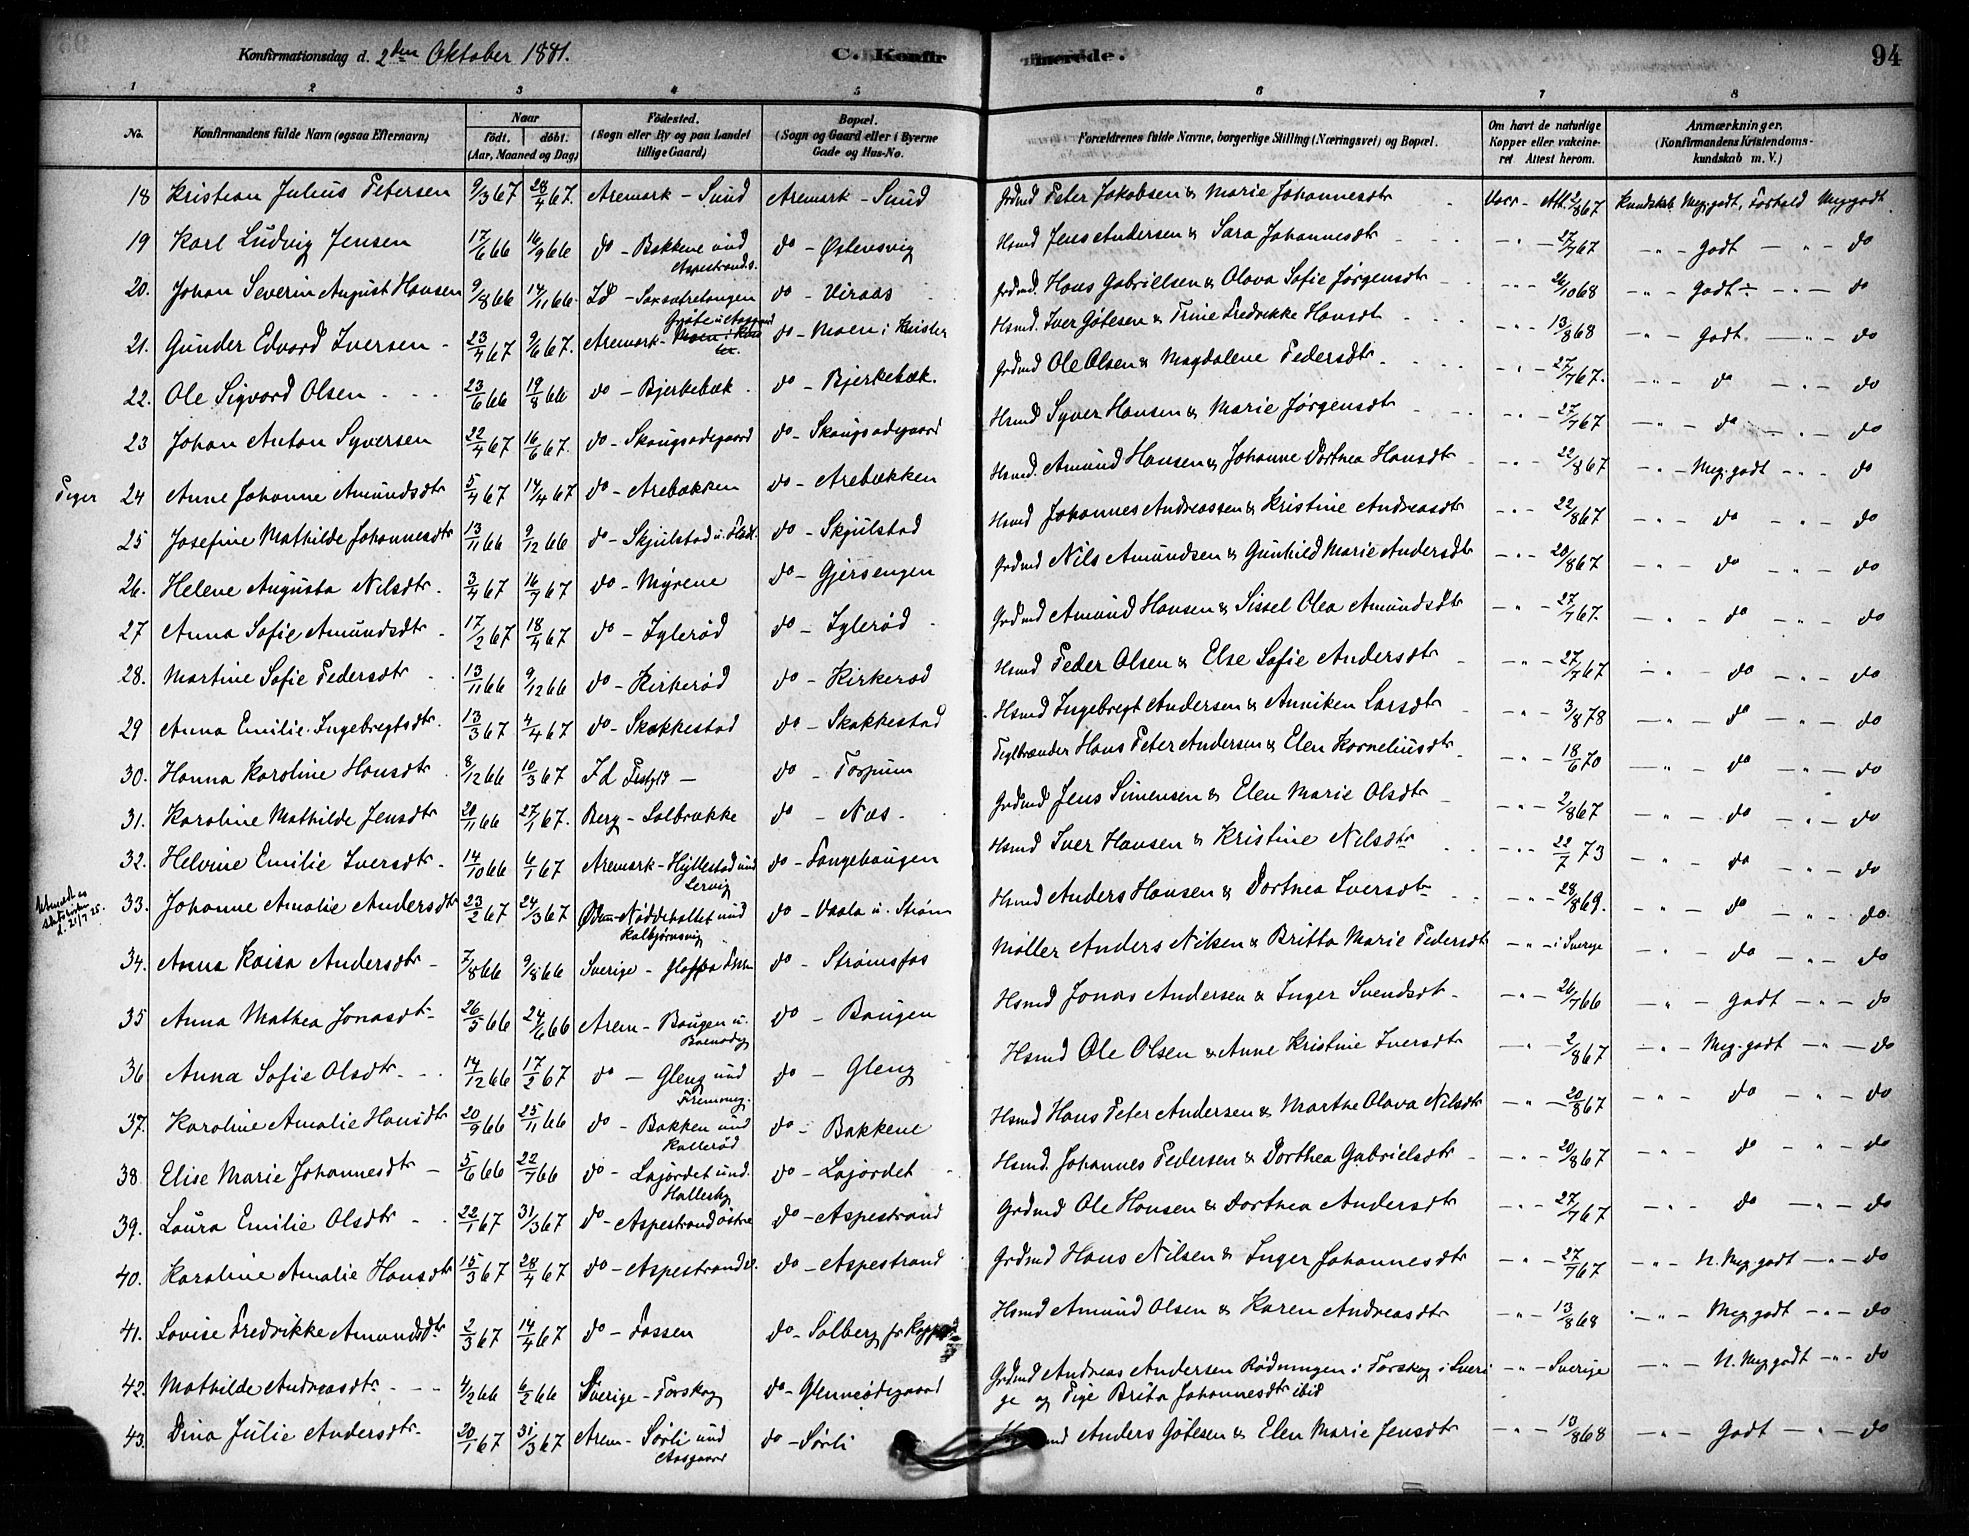 Konfirmationsdag d. 2den Oktober 1881. C. Konfirmerede. 94
1 2 3 4 5 6 7 8
No. Konfirmandens fulde Navn (ogsaa Efternavn) Naar født. døbt. (Aar, Maaned og Dag) Fødested. (Sogn eller By og paa Landet tillige Gaard) Bopæl. (Sogn og Gaard eller i Byerne Gade og Hus-No. Forældrenes fulde Navne, borgerlige Stilling (Næringsvei) og Bopæl. Om havt de naturlige Kopper eller vakcineret Attest herom. Anmærkninger. (Konfirmandens Kristendomskundskab m. V.)
18 Kristian Julius Petersen 9/3 67 28/4 67. Aremark - Sund Aremark - Sund Grdmd Peter Jakobsen & Marie Johannesdtr Vacc - Att. 2/8 67 Kundskab Meg. godt, Forhold Meg godt
19 Karl Ludvig Jensen 17/6 66 16/9 66 do - Bakkene und Aspestrand s. do - Østensvig Hsmd Jens Andersen & Sara Johannesdtr - " - 27/7 67 - " - Godt - " - do
20. Johan Severin August Hansen 9/8 66 14/11 66. Id - do - Viraas Grdmd. Hans Gabrielsen & Olava Sofie Jørgensdtr - " - 26/10 68 - " - Godt ÷ - " - do
21. Gunder Edvard Iversen 23/4 67 9/6 67. Aremark - Grøte u. Aasgaard do - Moen i Kuister Hsmd. Iver Gøtesen & Trine Fredrikke Hansdtr - " - 13/8 68 - " - Godt. - " - do
22. Ole Sigvard Olsen 23/6 66 19/8 66 do - Bjerkebæk do - Bjerkebæk. Grdmd Ole Olsen & Magdalene Pedersdtr - " - 27/7 67. - " - do - " - do
23 Johan Anton Syversen 22/4 67 16/6 67. do - Skougsødegaard do - Skougsødegaard Hsmd Syver Hansen & Marie Jørgensdtr - " - 27/7 67 - " - do - " - do
Piger 24 Anne Johanne Amundsdtr 5/4 67 14/4 67 do - Arebakken do - Arebakken Hsmd. Amund Hansen & Johanne Dorthea Hansdtr - " - 22/8 67 - " - Meg. godt - " - do
25 Josefine Mathilde Johannesdtr 13/11 66 9/12 66 do - Skjulstad u. do - Skjulstad Hsmd Johannes Andreassen & Kristine Andreasdtr - " - 22/8 67 - " - do - " - do
26. Helene Augusta Nilsdtr. 3/4 67 16/7 67 do - Myrene do - Gjersengen Grdmd Nils Amundsen & Gunhild Marie Andersdtr - " - 20/8 67 - " - do - " - do
27 Anna Sofie Amundsdtr 17/2 67 18/4 67 do - Iglerød do - Iglerød Grdmd Amund Hansen & Sissel Olea Amundsdtr - " - 27/7 67. - " - do - " - do
28. Martine Sofie Pedersdtr 13/11 66 9/12 66 do - Kirkerød do - Kirkerød Hsmd Peder Olsen & Else Sofie Andersdtr - " - 27/7 67 - " - do - " - do
29 Anna Emilie Ingebregtsdtr. 13/3 67 4/4 67 do - Skakkestad do - Skakkestad Hsmd Ingebregt Andersen & Anniken Larsdtr - " - 3/8 78 - " - do - " - do
30. Hanna Karoline Hansdtr 8/12 66 10/3 67 Id - do - Torpum Teglbrænder Hans Peter Andersen & Elen Korneliusdtr - " - 18/6 70 - " - do - " - do
31. Karoline Mathilde Jensdtr 20/11 66 27/1 67. Berg - Solbrække do - Næs. Grdmd Jens Simensen & Elen Marie Olsdtr - " - 2/8 67 - " - do - " - do
32. Helvine Emilie Iversdtr. 14/10 66 6/1 67 Aremark - Hyllestad und Lervig do - Langehougen Hsmd Iver Hansen & Kristine Nilsdtr - " - 22/7 73 - " - do - " - do
21/7 25. 33. Johanne Amalie Andersdtr 23/2 67 24/3 67 Nøddeholtet und Kalbjørnsvig do - Vaala u. Strøm Hsmd Anders Hansen & Dorthea Iversdtr - " - 28/8 69. - " - do - " - do.
34. Anna Kaisa Andersdtr 7/8 66 9/8 66 Sverige - do - Strømsfos Møller Anders Nilsen & Britta Marie Pedersdtr - " - i Sverige - " - do - " - do
35 Anna Mathea Jonasdtr 26/5 66 24/6 66 Arem - Bougen u. do - Bougen Hsmd Jonas Andersen & Inger Svendsdtr - " - 26/7 66 - " - Godt - " - do
36 Anna Sofie Olsdtr 14/12 66 17/2 67 do - Gleng und do - Gleng Hsmd Ole Olsen & Anne Kristine Iversdtr - " - 2/8 67 - " - Meg. godt - " - do
37. Karoline Amalie Hansdtr 20/9 66 25/11 66 do - Bakken und Kallerød do - Bakkene Hsmd Hans Peter Andersen & Marthe Olava Nilsdtr - " - 20/8 67 - " - do - " - do
38 Elise Marie Johannesdtr 5/6 66 22/7 66 do - Løjordet und. Halleby do - Løjordet Hsmd. Johannes Pedersen & Dorthea Gabrielsdtr - " - 20/8 67 - " - do - " - do
39. Laura Emilie Olsdtr 22/1 67 31/3 67 do - Aspestrand østre do - Aspestrand Grdmd Ole Hansen & Dorthea Andersdtr - " - 27/7 67 - " - do - " - do
40. Karoline Amalie Hansdtr 15/3 67 28/4 67 do - Aspestrand do - Aspestrand Grdmd Hans Nilsen & Inger Johannesdtr - " - 27/7 67 - " - N. Meg. godt - " - do
41. Lovise Fredrikke Amundsdtr 2/3 67 14/4 67 do - Fossen do - Solberg Hsmd Amund Olsen & Karen Andreasdtr - " - 13/8 68 - " - Meg. godt - " - do
42. Mathilde Andreasdtr. 4/2 66 6/2 66 Sverige - Torskog do - Glenneødegaard Grdmd Andreas Andersen Rødningen i Torskog i Sverige og Pige Brita Johannesdtr ibid - " - Sverige - " - N. Meg godt - " - do
43. Dina Julie Andersdtr. 20/1 67 31/3 67 Arem - Sørli und Aasgaard do - Sørli Anders Gøtesen & Elen Marie Jensdtr - " - 13/8 68 - " - Godt - " - do